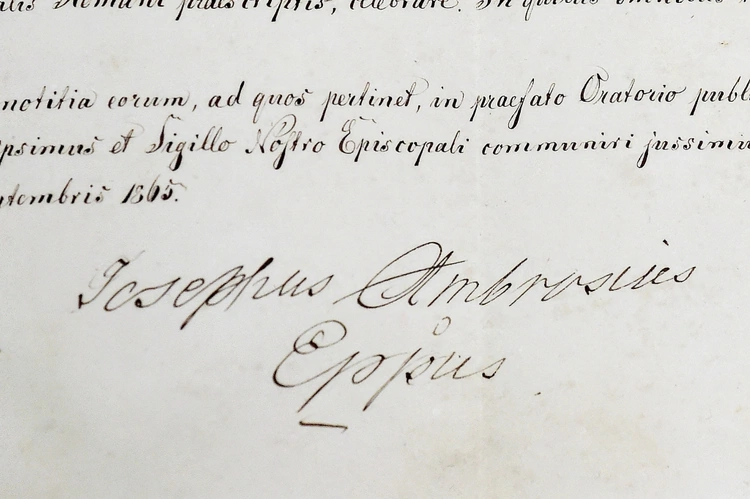 alis Romani praescriptis, celebrare. In quibus omnibus
notitia eorum, ad quos pertinet, in praefato Oratorio publ
psimus et Sigillo Nostro Episcopali communiri jussimu
ptembris 1865.
Josephus Ambrosius
Eppus